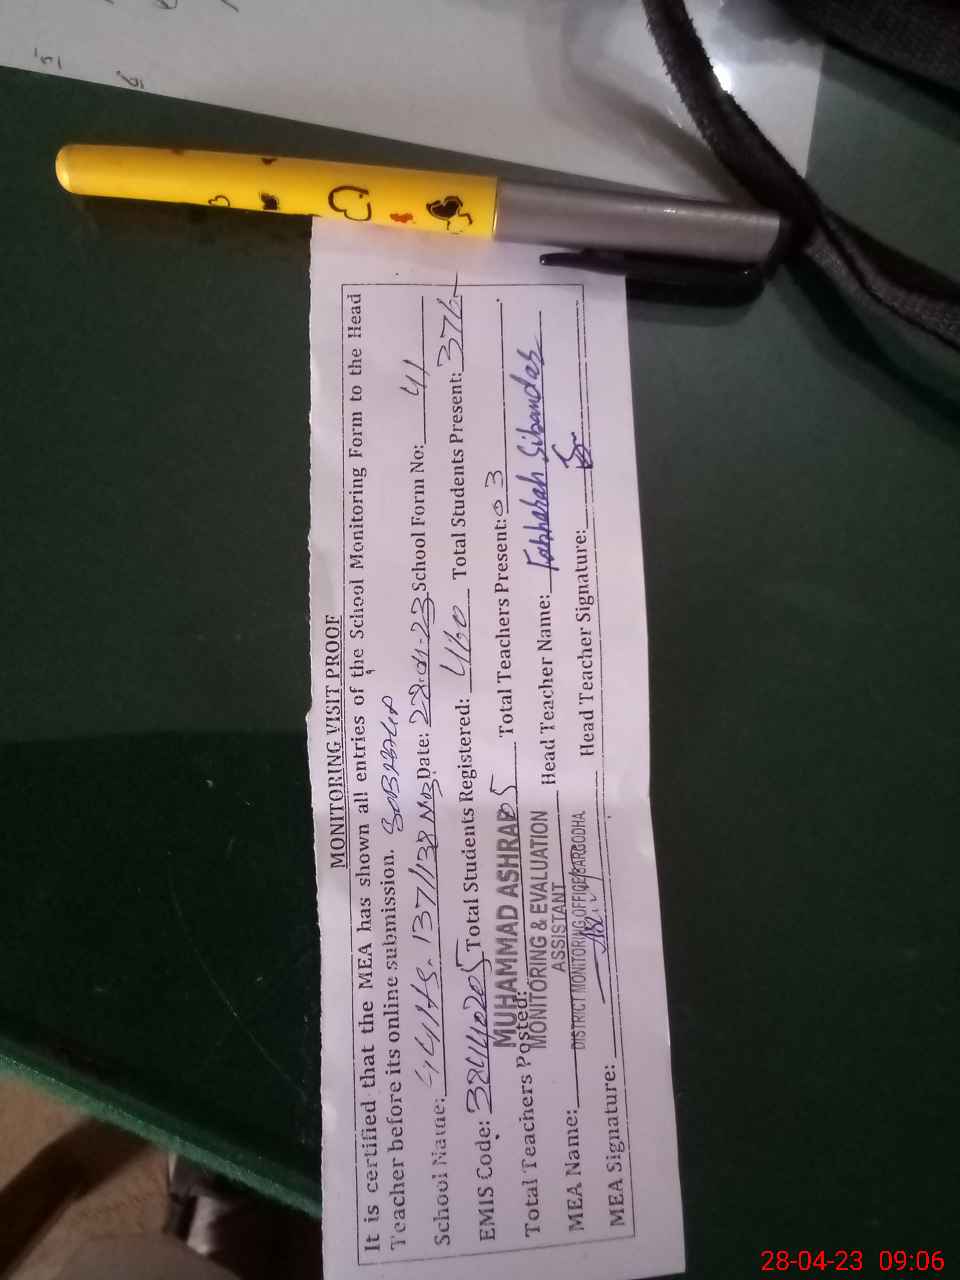 MONITORING VISIT PROOF
It is certified that the MEA has shown all entries of the School Monitoring Form to the Head
Teacher before its online submission.
School Name: 137/138 Date: 28-04-23 School Form No: 41
EMIS Code: 38440205 Total Students Registered: 460 Total Students Present: 376
Total Teachers Posted: 05 Total Teachers Present: 03
MUHAMMAD ASHRAF
MONITORING & EVALUATION
ASSISTANT
DISTRICT MONITORING OFFICE SARGODHA
MEA Name: Head Teacher Name:
MEA Signature: Head Teacher Signature:
28-04-23 09:06